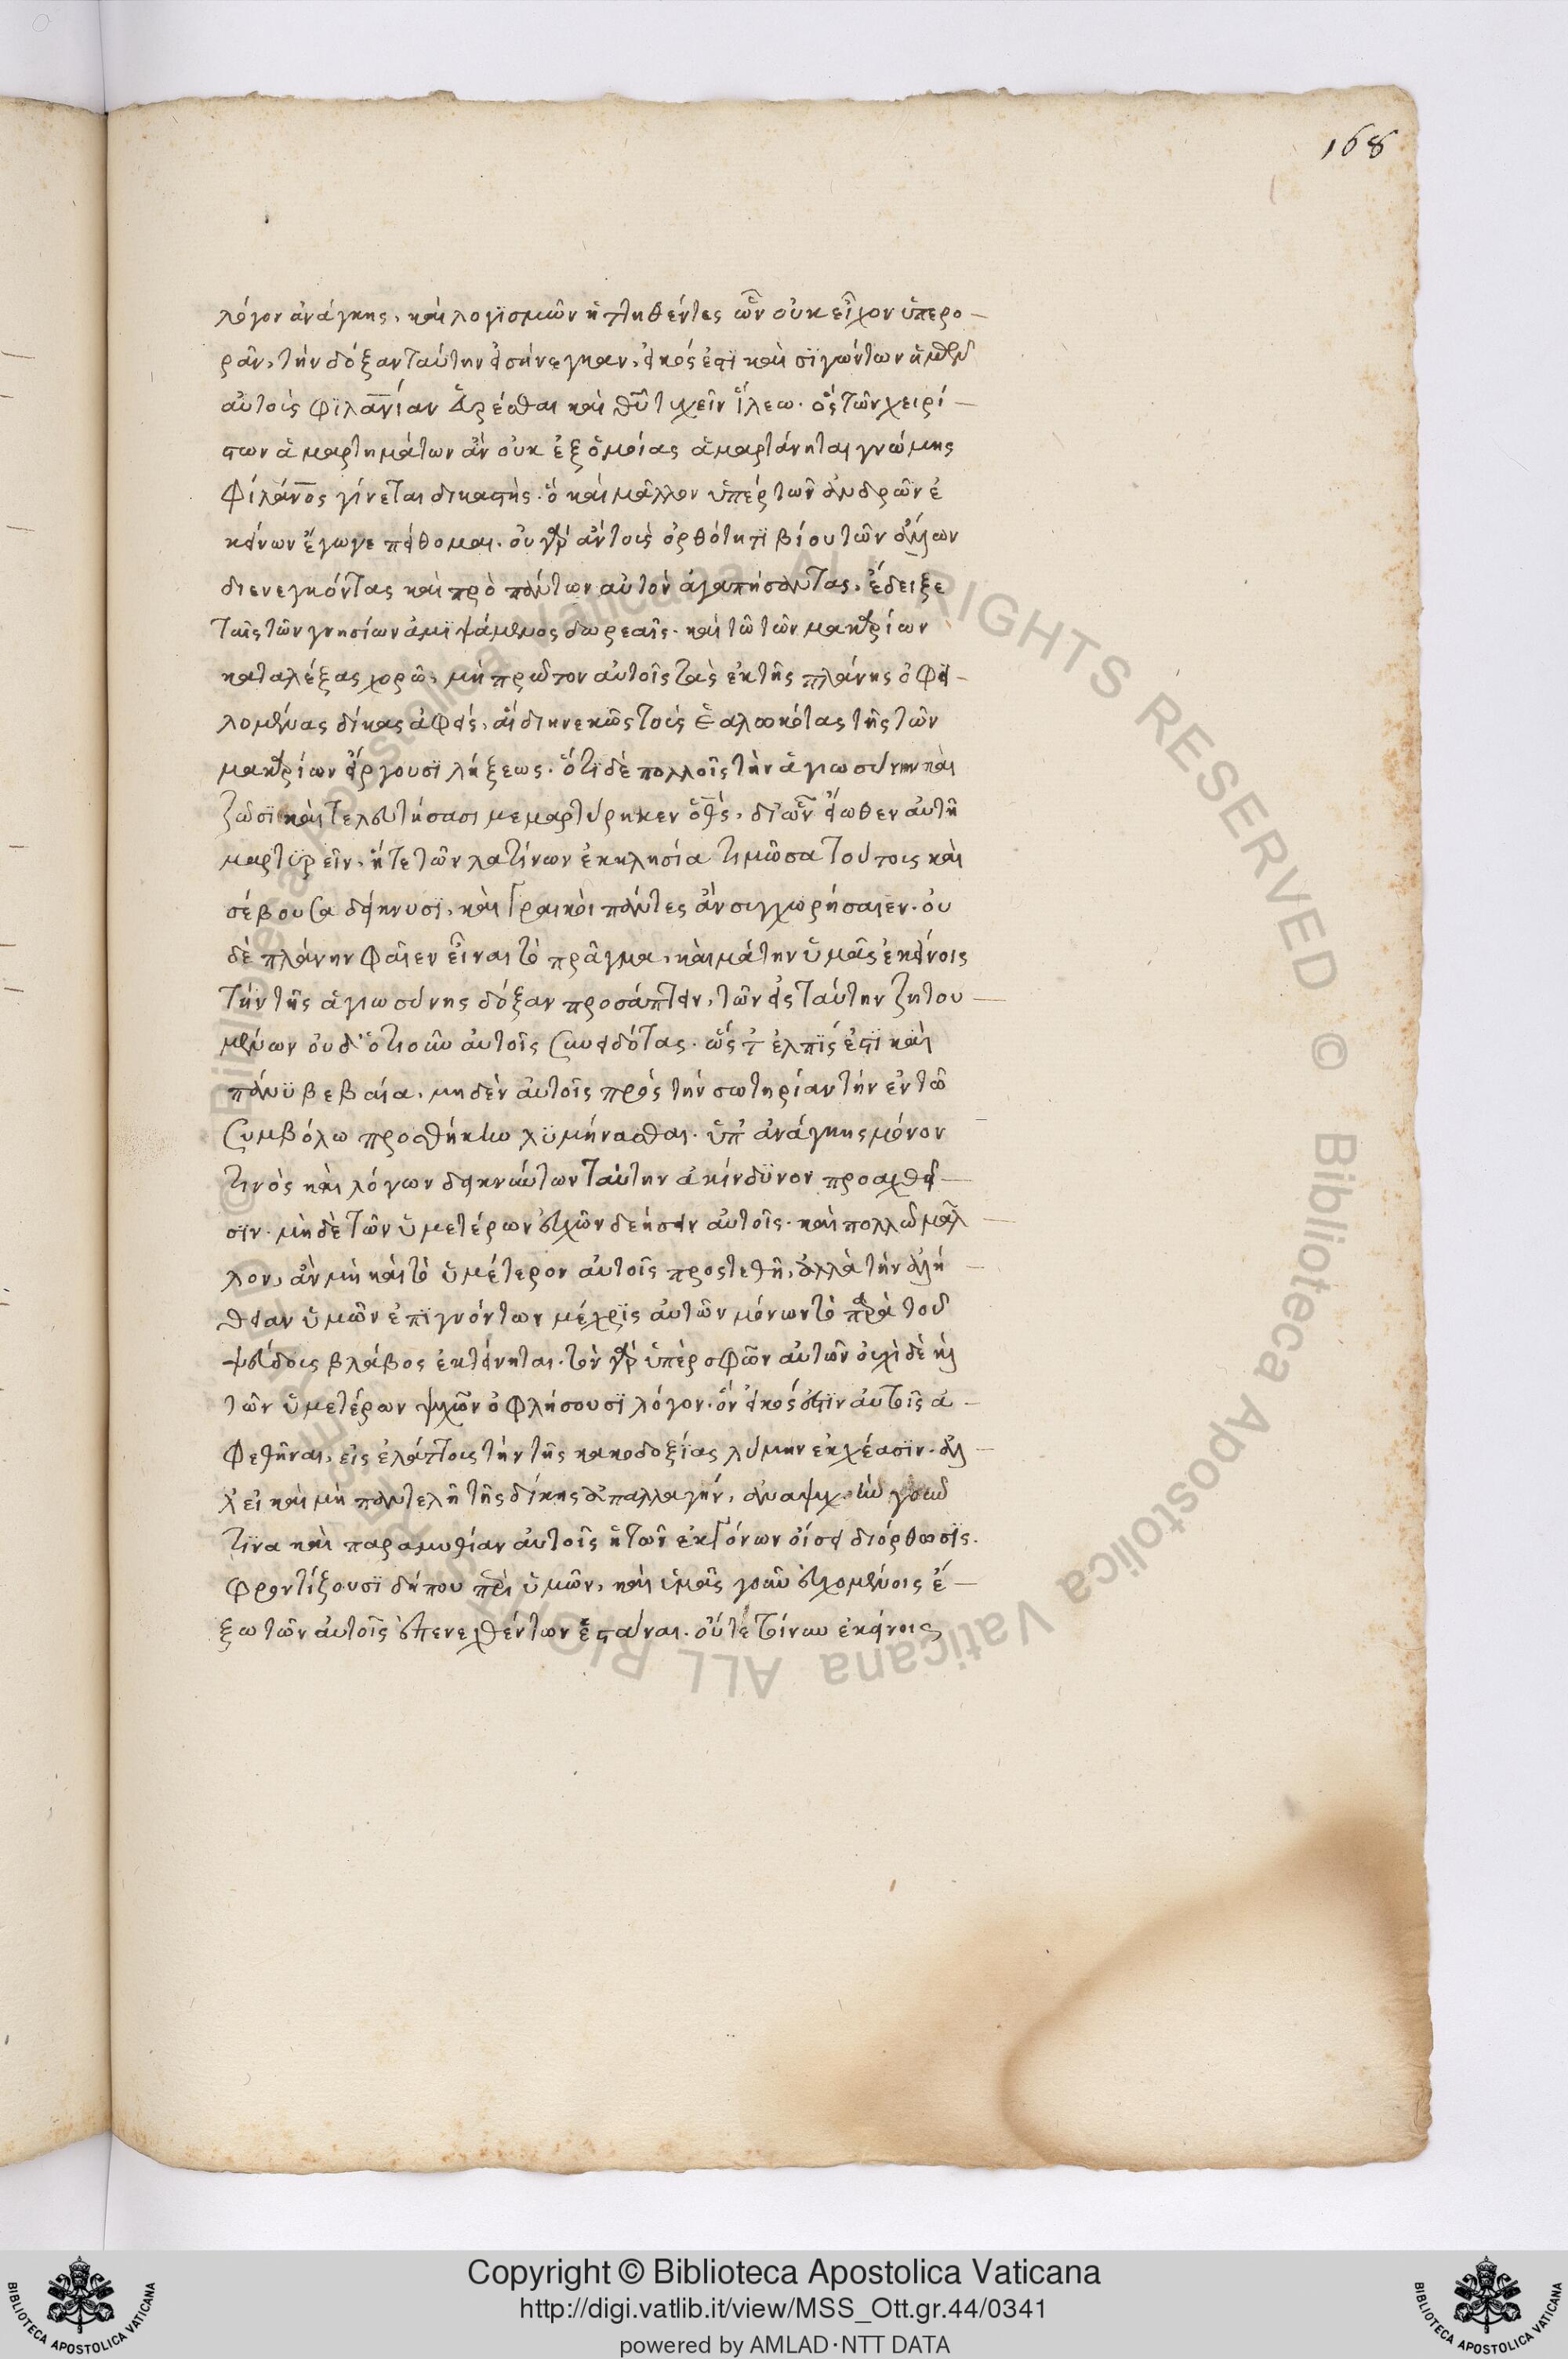 168
λόγον ἀνάγκης, καὶ λογϊσμῶν ἡττηθέντες ὧν οὐκ εἶχον ὑπερο
ρᾶν, τὴν δόξαν ταύτην εἰσήνεγκαν, εἰκός ἐστϊ καὶ σϊγώντων ἡμῶν
αὐτοὺς φϊλανίαν εὑρέσθαι καὶ θῦ τυχεῖν ἵλεω. ὃς τῶν χειρί
στων ἁμαρτημάτων ἂν οὐκ ἐξ ὁμοίας ἁμαρτάνηται γνώμης
φιλάνος γίνεται δικαστής. ὃ καὶ μᾶλλον ὑπὲρ τῶν ἀνδρῶν ἐ
κείνων ἔγωγε πείθομαι. οὐ γὰρ ἂν τοὺς ὀρθότητϊ βίου τῶν ἄλλων
διενεγκόντας καὶ πρὸ πάντων αὐτὸν ἀγαπήσαντας, ἔδειξε
ταῖς τῶν γνησίων ἀμϊψάμενος δωρεαῖς. καὶ τῶ τῶν μακαρίων
καταλέξας χορῶ, μὴ πρῶτον αὐτοῖς τὰς ἐκ τῆς πλάνης ὀφει
λομένας δίκας ἀφεὶς, αἳ διηνεκῶς τοὺς ἑαλωκότας τῆς τῶν
μακαρίων εἴργουσϊ λήξεως. ὅτϊ δὲ πολλοῖς τὴν ἁγιωσύνην καὶ
ζῶσϊ καὶ τελευτήσασι μεμαρτύρηκεν ὁ θς, δι' ὧν εἴωθεν αὐτῆ
μαρτϋρεῖν, ἥ τε τῶν λατίνων ἐκκλησία τιμῶσα τούτοις καὶ
σέβουσα δείκνυσϊ, καὶ Γραικοὶ πάντες ἂν συγχωρήσαιεν. οὐ
δὲ πλάνην φαῖεν εἶναι τὸ πρᾶγμα, καὶ μάτην ὑμᾶς ἐκείνοις
τὴν τῆς ἁγιωσύνης δόξαν προσάπτειν, τῶν εἰς ταύτην ζητου
μένων οὐδ' ὁτιοῦν αὐτοῖς συνειδότας. ὥς τ' ἐλπίς ἐστϊ καὶ
πάνϋ βεβαία, μηδὲν αὐτοῖς πρὸς τὴν σωτηρίαν τὴν ἐν τῶ
συμβόλω προσθήκην λϋμήνασθαι. ὑπ' ἀνάγκης μόνον
τινὸς καὶ λόγων δεικνύντων ταύτην ἀκίνδϋνον προαχθεῖ
σϊν. μὴ δὲ τῶν ὑμετέρων εὐχῶν δεήσειν αὐτοῖς. καὶ πολλῶ μᾶλ
λον, ἂν μὴ καὶ τὸ ὑμέτερον αὐτοῖς προστεθῆ, ἀλλὰ τὴν ἀλή
θειαν ὑμῶν ἐπϊγνόντων μέχρϊς αὐτῶν μόνων τὸ παρὰ τοῦ
ψεύδους βλάβος ἐκτείνηται. τὸν γὰρ ὑπὲρ σφῶν αὐτῶν οὐχὶ δὲ καὶ
τῶν ὑμετέρων ψυχῶν ὀφλήσουσϊ λόγον. ὃν εἰκός ἐστϊν αὐτοῖς ἀ
φεθῆναι, εἰς ἐλάττους τὴν τῆς κακοδοξίας λύμην ἐκχέασϊν. ἀλ
λ' εἰ καὶ μὴ παντελῆ τῆς δίκης ἀπαλλαγήν, ἀναψυχὴν γοῦν
τϊνα καὶ παραμυθίαν αὐτοῖς ἡ τῶν ἐκγόνων οἴσει διόρθωσϊς.
φροντίζουσϊ δήπου περὶ ὑμῶν, καὶ ὑμᾶς γοῦν εὐχομένοις ἔ
ξω τῶν αὐτοῖς ἐπενεχθέντων ἑστάναι. οὔτε τοίνυν ἐκείνοις
Copyright © Biblioteca Apostolica Vaticana
http://digi.vatlib.it/view/MSS_Ott.gr.44/0341
powered by AMLAD·NTT DATA